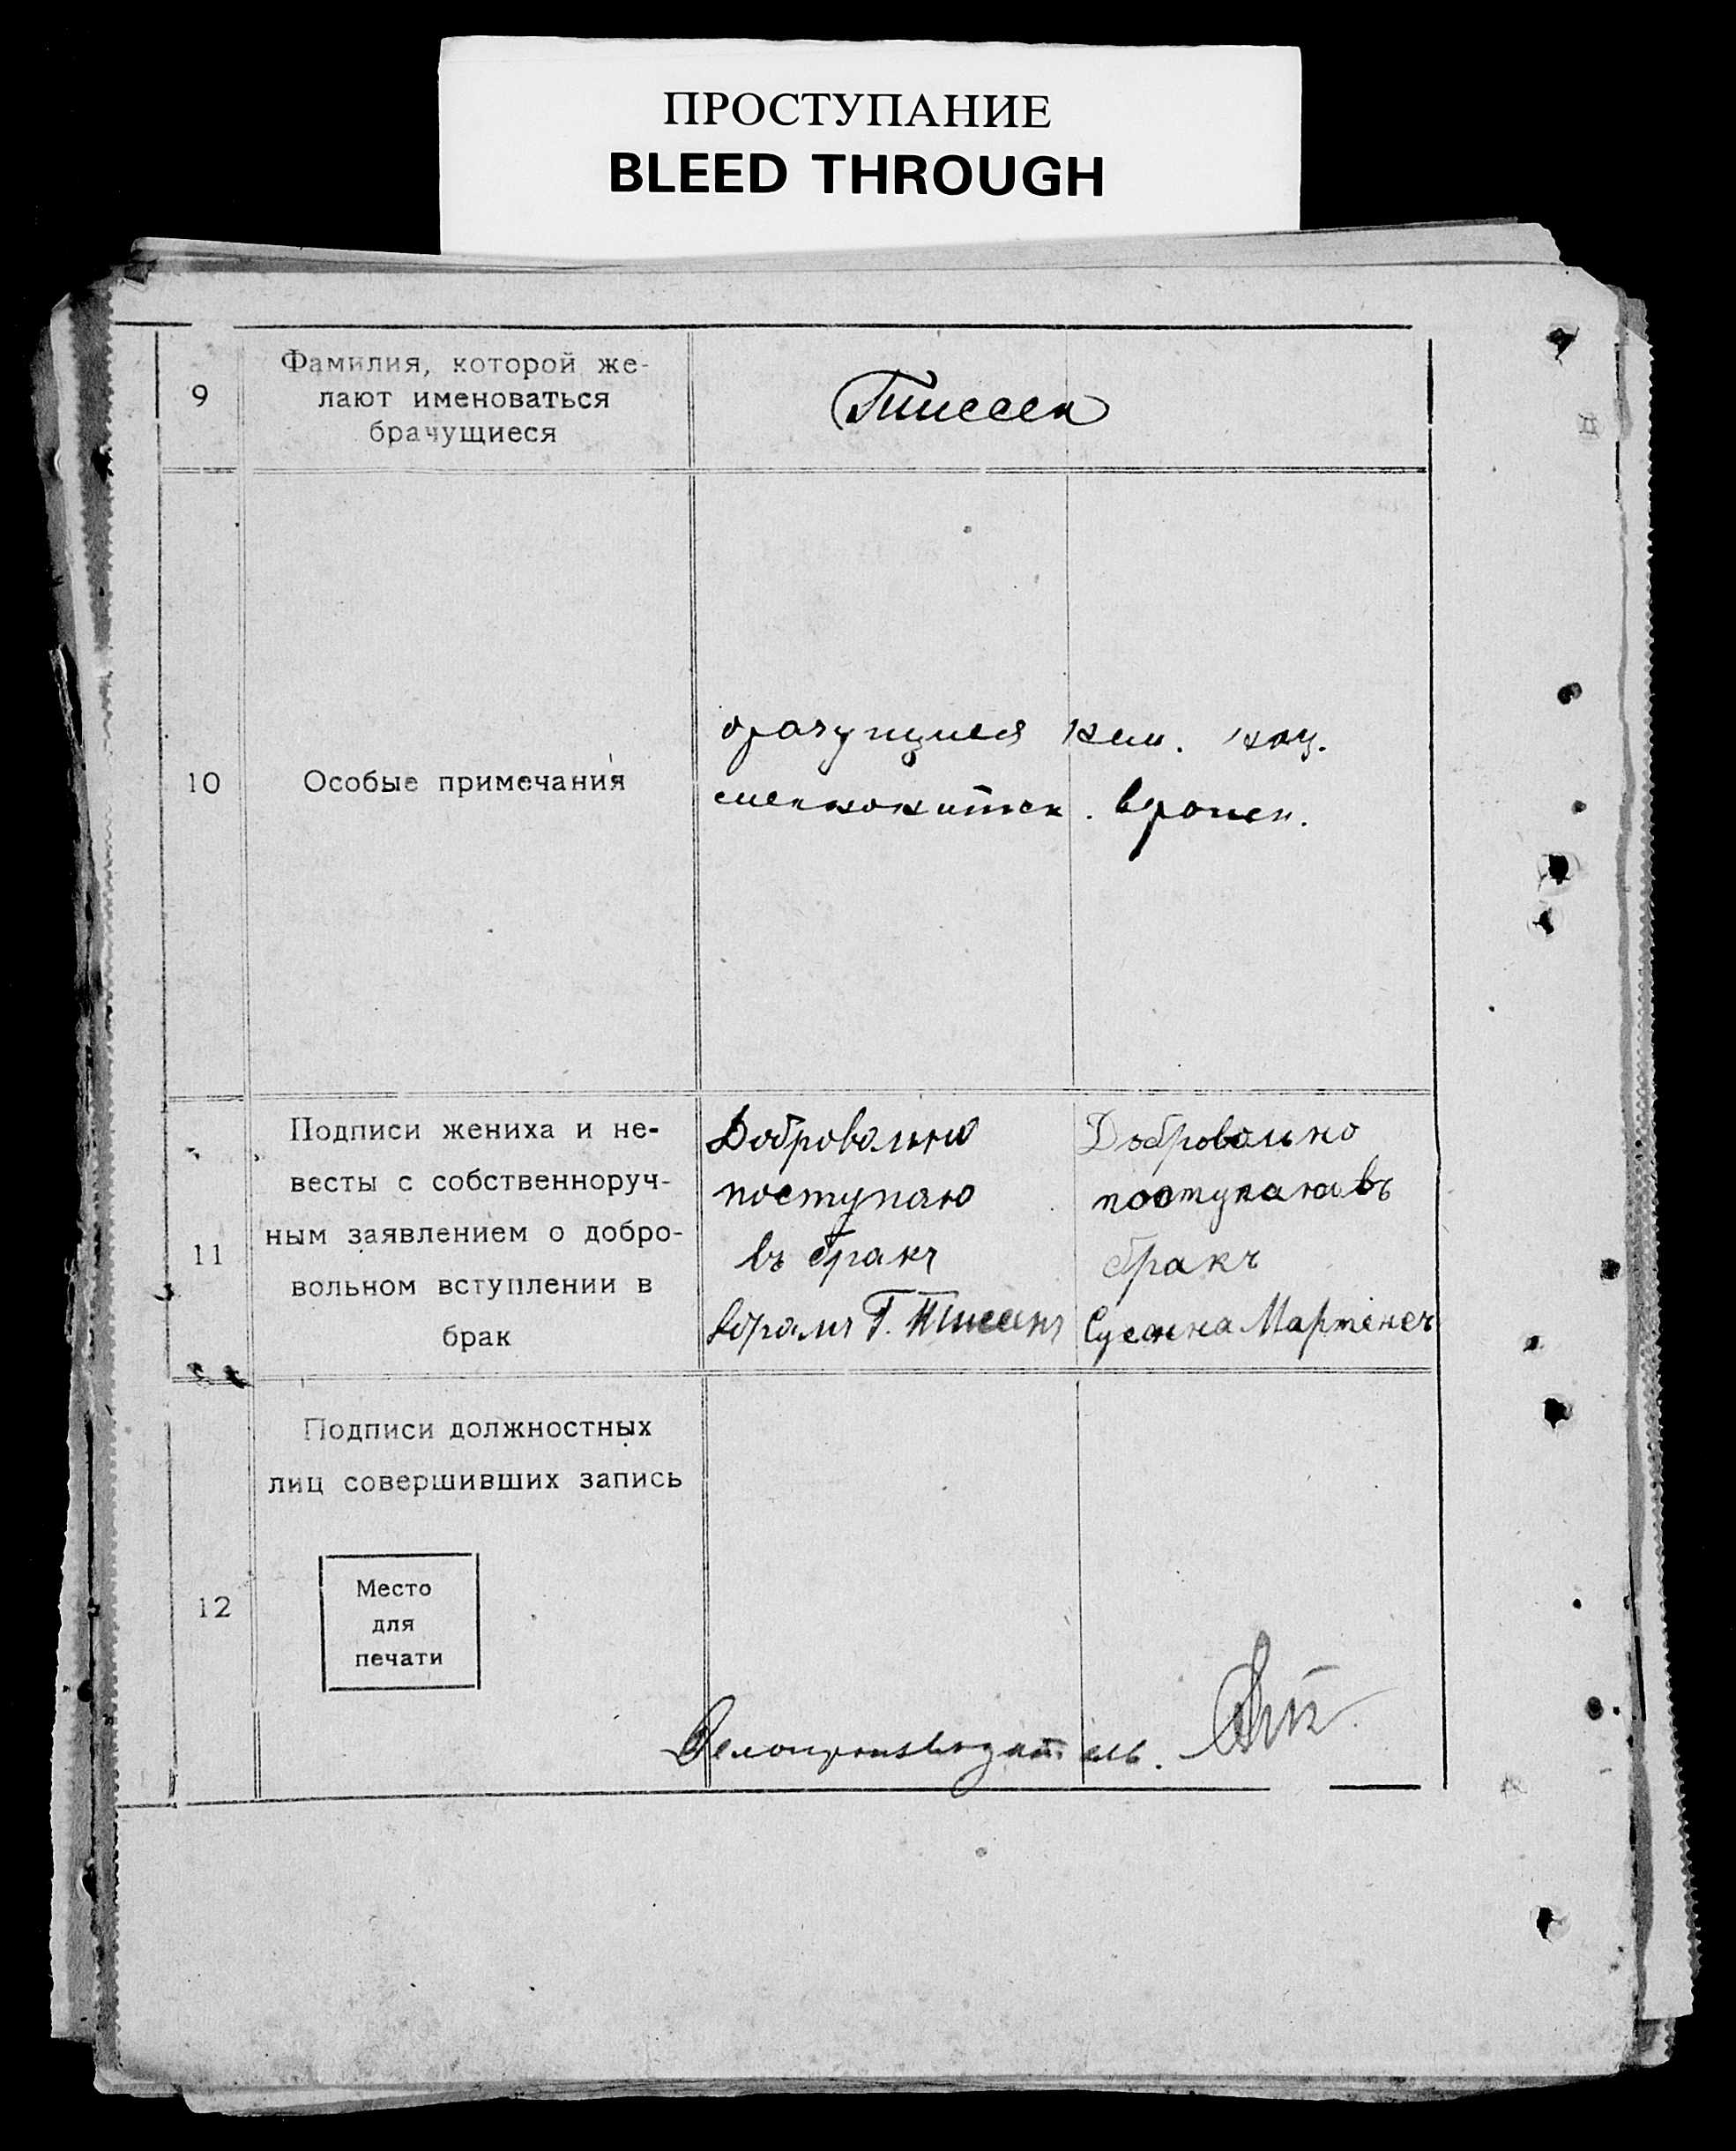 ПРОСТУПАНИЕ
BLEED THROUGH
9
Фамилия, которой же-
лают именоваться
брачущиеся
Тиссен
10
Особые примечания
брачущиеся
11
Подписи жениха и не-
весты с собственноруч-
ным заявлением о добро-
вольном вступлении в
брак
Добровольно
поступаю
въ бракъ
Абрамъ Г. Тиссенъ
Добровольно
поступаю въ
бракъ
Сусанна Мартенсъ
12
Подписи должностных
лиц совершивших запись
Место
для
печати
Делопроизводитель.